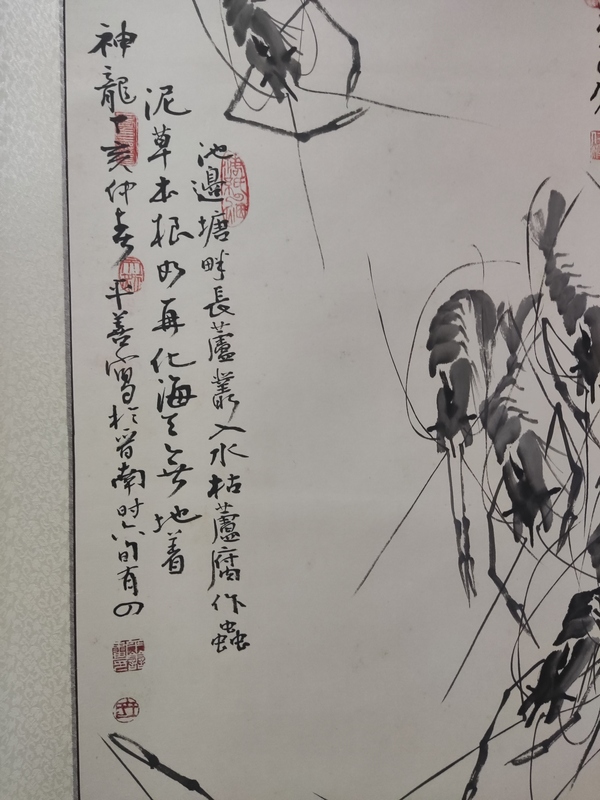 池邊塘畔長蘆叢入水枯蘆腐作蟲
泥草木根如再化海天無地着
神龍丁亥仲春平善寫於晉南时六旬有四